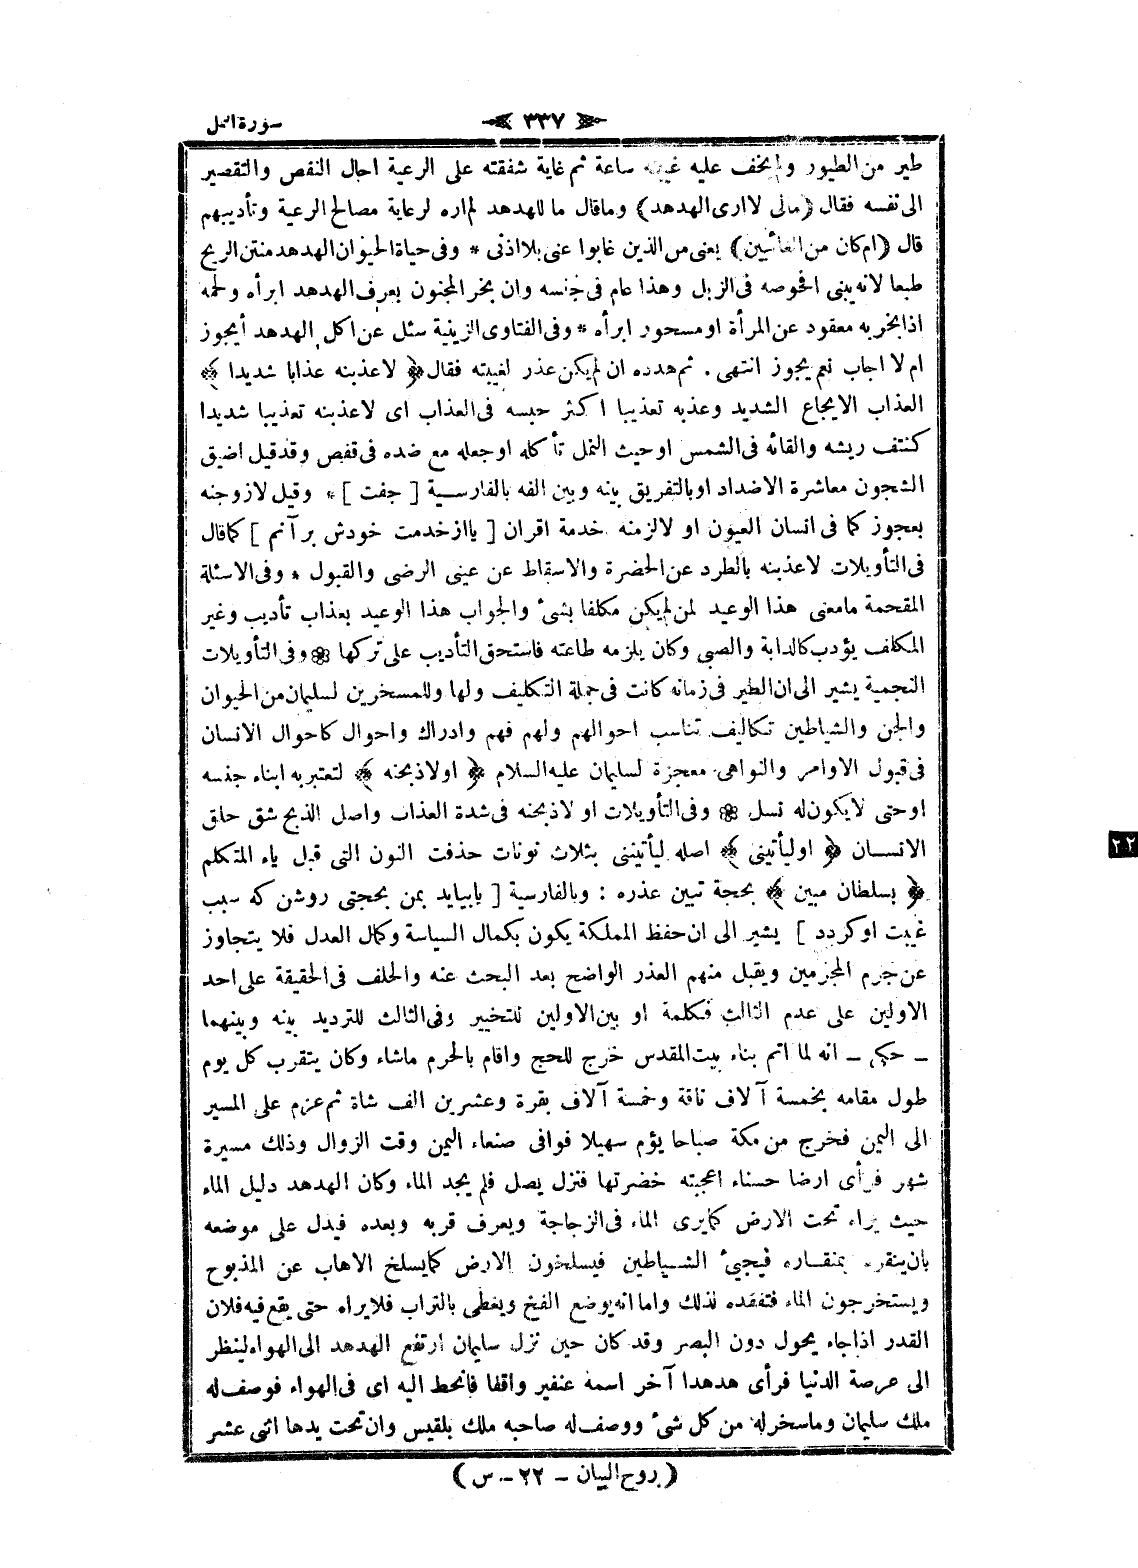 ﴿ ٣٣٧ ﴾ سورة النمل
طير من الطيور ولم يخف عليه غيبته ساعة ثم غاية شفقته على الرعية احال النقص والتقصير
الى نفسه فقال (مالى لاارى الهدهد) وماقال ما للهدهد لم اره لرعاية مصالح الرعية وتأديبهم
قال (ام كان من الغائبين) يعنى من الذين غابوا عنى بلااذنى * وفى حياة الحيوان الهدهد منتن الريح
طبعا لانه يبنى افحوصه فى الزبل وهذا عام فى جنسه وان بخر المجنون بعرف الهدهد ابرأه ولحمه
اذا بخر به معقود عن المرأة او مسحور ابرأه * وفى الفتاوى الزينية سئل عن اكل الهدهد أيجوز
ام لا اجاب نعم يجوز انتهى . ثم هدده ان لم يكن عذر لغيبته فقال ﴿ لاعذبنه عذابا شديدا ﴾
العذاب الايجاع الشديد وعذبه تعذيبا اكثر حبسه فى العذاب اى لاعذبنه تعذيبا شديدا
كنتف ريشه والقائه فى الشمس او حيث النمل تأكله او جعله مع ضده فى قفص وقد قيل اضيق
السجون معاشرة الاضداد او بالتفريق بينه وبين الفه بالفارسية [ جفت ] * وقيل لازوجنه
بعجوز كما فى انسان العيون او لالزمنه خدمة اقران [ يا از خدمت خودش برآنم ] كما قال
فى التأويلات لاعذبنه بالطرد عن الحضرة والاسقاط عن عينى الرضى والقبول * وفى الاسئلة
المقحمة مامعنى هذا الوعيد لمن لم يكن مكلفا بشئ والجواب هذا الوعيد بعذاب تأديب وغير
المكلف يؤدب كالدابة والصبى وكان يلزمه طاعته فاستحق التأديب على تركها ❁ وفى التأويلات
النجمية يشير الى ان الطير فى زمانه كانت فى جملة التكليف ولها وللمسخرين لسليمان من الحيوان
والجن والشياطين تكاليف تناسب احوالهم ولهم فهم وادراك واحوال كاحوال الانسان
فى قبول الاوامر والنواهى معجزة لسليمان عليه السلام ﴿ اولاذبحنه ﴾ لتعتبر به ابناء جنسه
او حتى لا يكون له نسل ❁ وفى التأويلات او لاذبحنه فى شدة العذاب واصل الذبح شق حلق
الانسان ﴿ اوليأتينى ﴾ اصله ليأتيننى بثلاث نونات حذفت النون التى قبل ياء المتكلم
﴿ بسلطان مبين ﴾ بحجة تبين عذره : وبالفارسية [ يا بيايد بمن بحجتى روشن كه سبب
غيبت او كردد ] يشير الى ان حفظ المملكة يكون بكمال السياسة وكمال العدل فلا يتجاوز
عن جرم المجرمين ويقبل منهم العذر الواضح بعد البحث عنه والحلف فى الحقيقة على احد
الاولين على عدم الثالث فكلمة او بين الاولين للتخيير وفى الثالث للترديد بينه وبينهما
ــ حكى ــ انه لما اتم بناء بيت المقدس خرج للحج واقام بالحرم ماشاء وكان يتقرب كل يوم
طول مقامه بخمسة آلاف ناقة وخمسة آلاف بقرة وعشرين الف شاة ثم عزم على المسير
الى اليمن فخرج من مكة صباحا يؤم سهيلا فوافى صنعاء اليمن وقت الزوال وذلك مسيرة
شهر فرأى ارضا حسناء اعجبته خضرتها فنزل يصل فلم يجد الماء وكان الهدهد دليل الماء
حيث يراه تحت الارض كما يرى الماء فى الزجاجة ويعرف قربه وبعده فيدل على موضعه
بان ينقره بمنقاره فيجئ الشياطين فيسلخون الارض كما يسلخ الاهاب عن المذبوح
ويستخرجون الماء فتفقده لذلك واما انه يوضع الفخ ويغطى بالتراب فلا يراه حتى يقع فيه فلان
القدر اذا جاء يحول دون البصر وقد كان حين نزل سليمان ارتفع الهدهد الى الهواء لينظر
الى عرصة الدنيا فرأى هدهدا آخر اسمه عنفير واقفا فانحط اليه اى فى الهواء فوصف له
ملك سليمان وما سخر له من كل شئ ووصف له صاحبه ملك بلقيس وان تحت يدها اثنى عشر
( روح البيان – ٢٢ – س )
٢٢